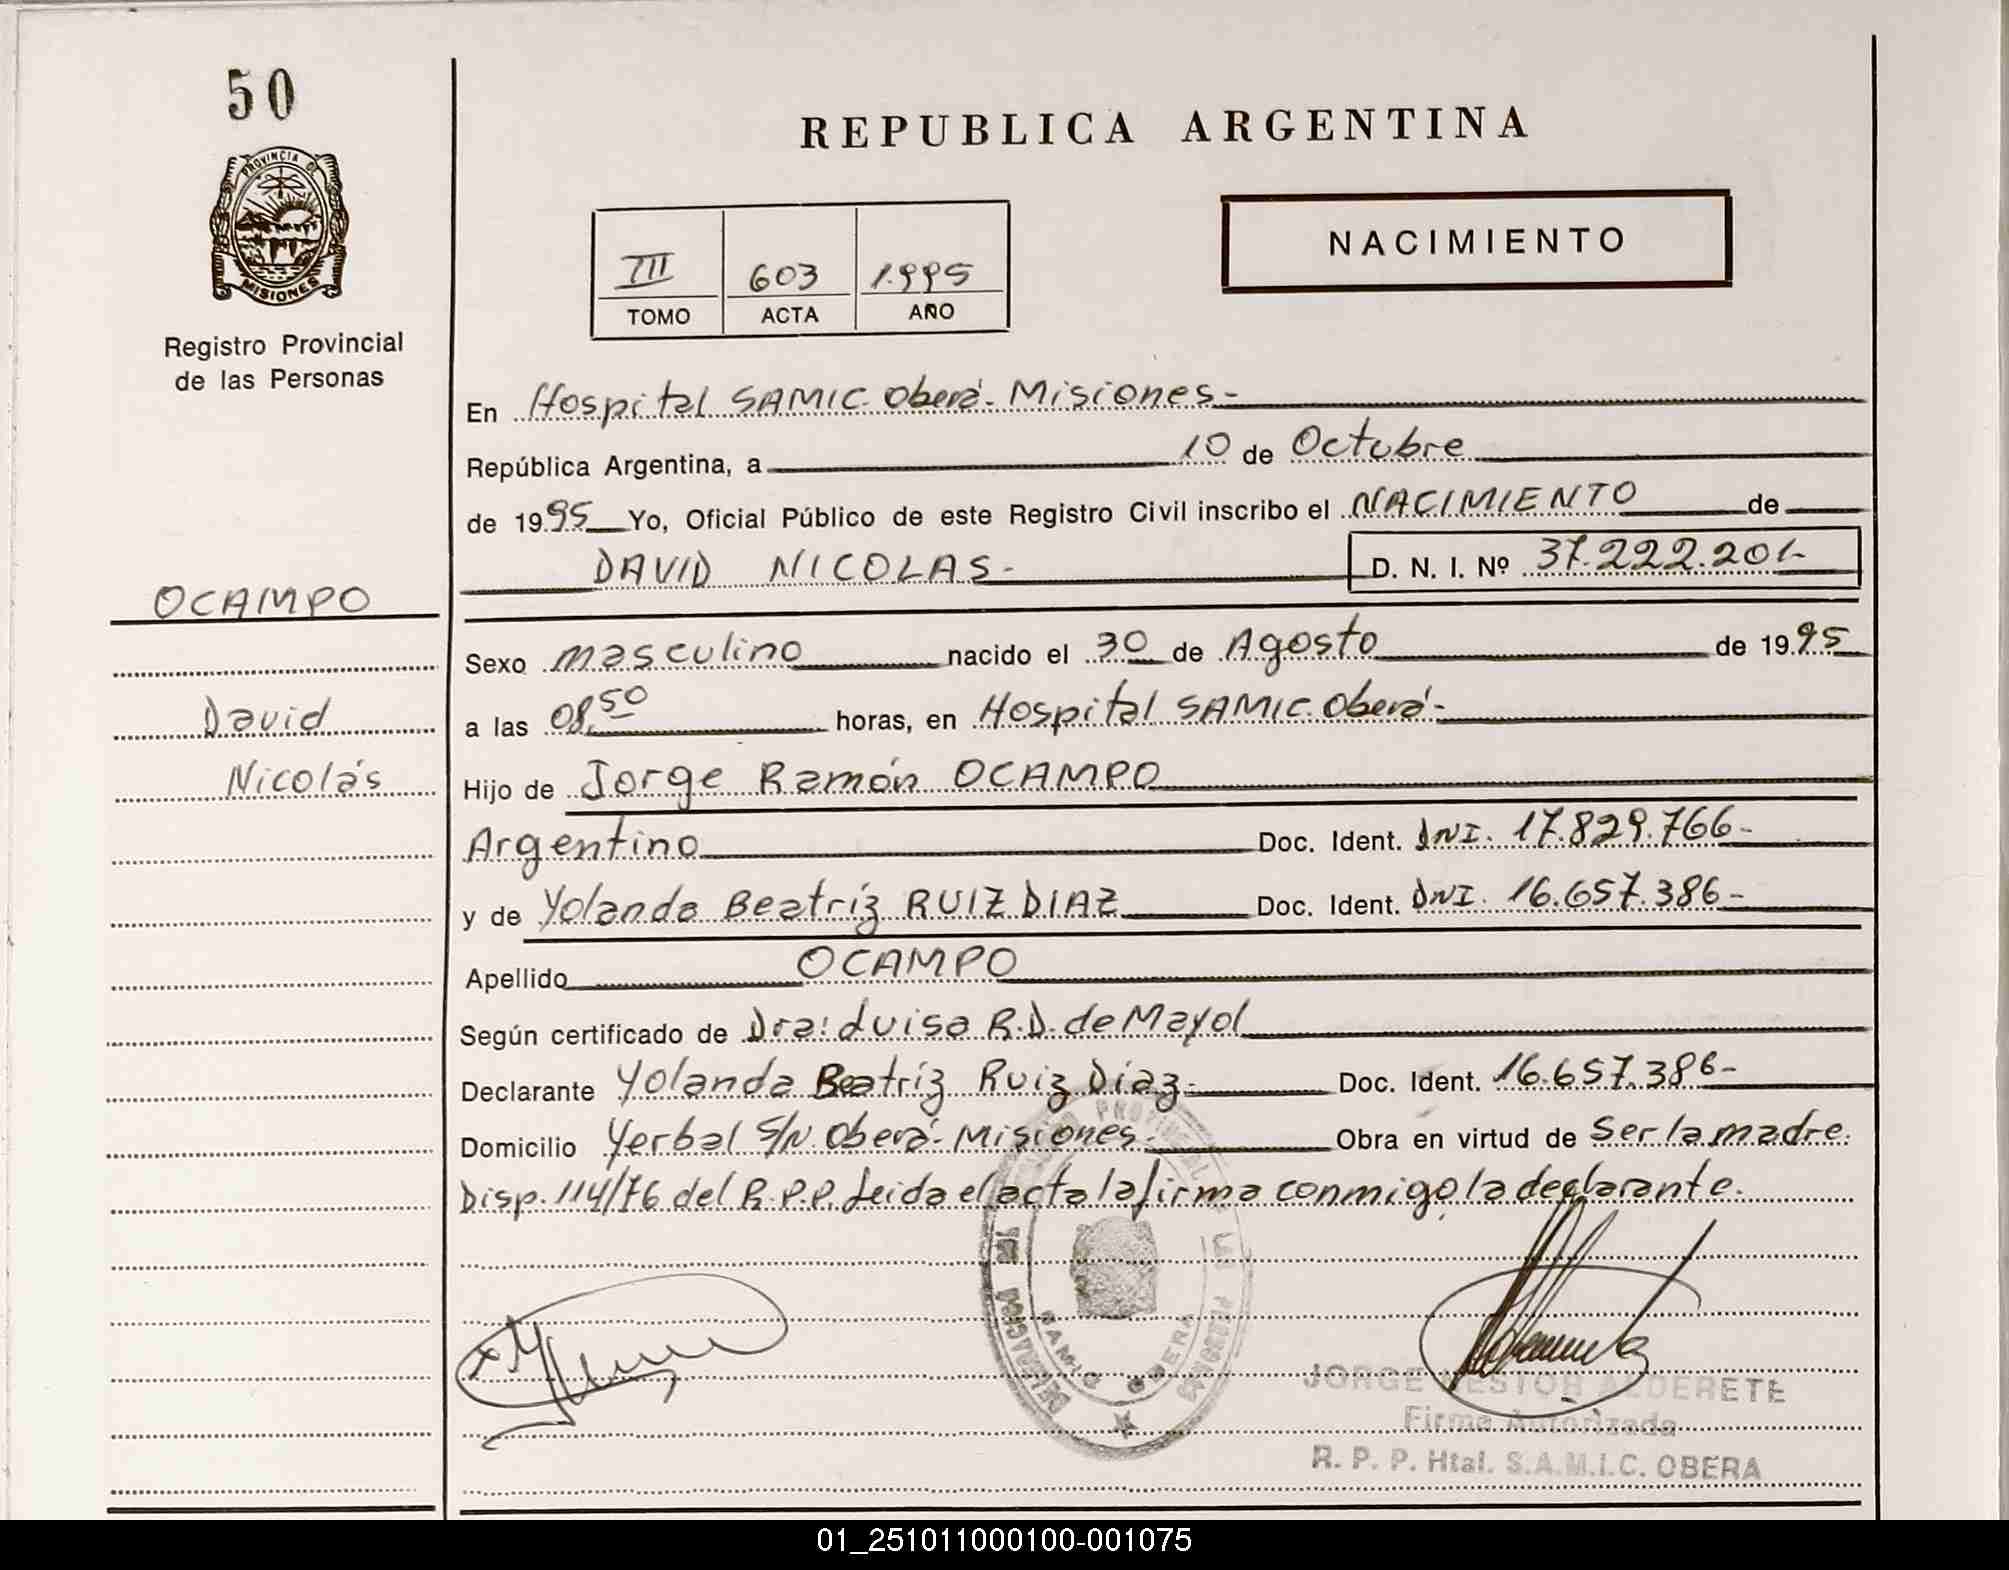 50
PROVINCIA DE
MISIONES
Registro Provincial
de las Personas
OCAMPO
David
Nicolás
REPUBLICA ARGENTINA
NACIMIENTO
III 603 1.995
TOMO ACTA AÑO
En Hospital SAMIC. Oberá. Misiones-
República Argentina, a 10 de Octubre
de 1995 Yo, Oficial Público de este Registro Civil inscribo el NACIMIENTO de
DAVID NICOLAS- D. N. I. Nº 37.222.201-
Sexo masculino nacido el 30 de Agosto de 1995
a las 08,50 horas, en Hospital SAMIC. Oberá-
Hijo de Jorge Ramón OCAMPO
Argentino Doc. Ident. DNI. 17.829.766-
y de Yolanda Beatríz RUIZ DIAZ Doc. Ident. DNI. 16.657.386-
Apellido OCAMPO
Según certificado de Dra: Luisa R.D. de Mayol
Declarante Yolanda Beatríz Ruiz Díaz- Doc. Ident. 16.657.386-
Domicilio Yerbal S/N. Oberá- Misiones- Obra en virtud de Ser la madre.
Disp. 114/76 del R.P.P. Leida el acta la firma conmigo la declarante.
PROVINCIAL DE LAS PERSONAS
DELEGACION
SAMIC OBERA
JORGE NESTOR ALDERETE
Firma Autorizada
R. P. P. Htal. S.A.M.I.C. OBERA
01_251011000100-001075